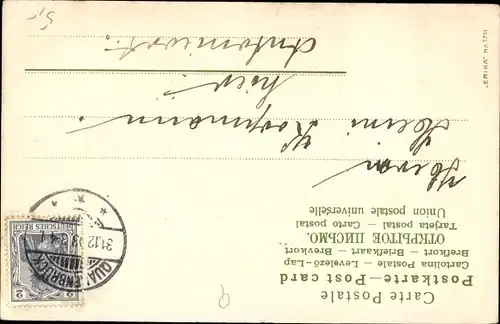 Carte Postale
Postkarte — Post card
Cartolina Postale — Levelező-Lap
Brefkort — Briefkaart — Brevkort
ОТКРЫТОЕ ПИСЬМО.
Tarjeta postal — Carto postal
Union postale universelle
Herrn
Heini
hier
DEUTSCHES REICH
2 2
QUAKENBRÜCK
31.12.